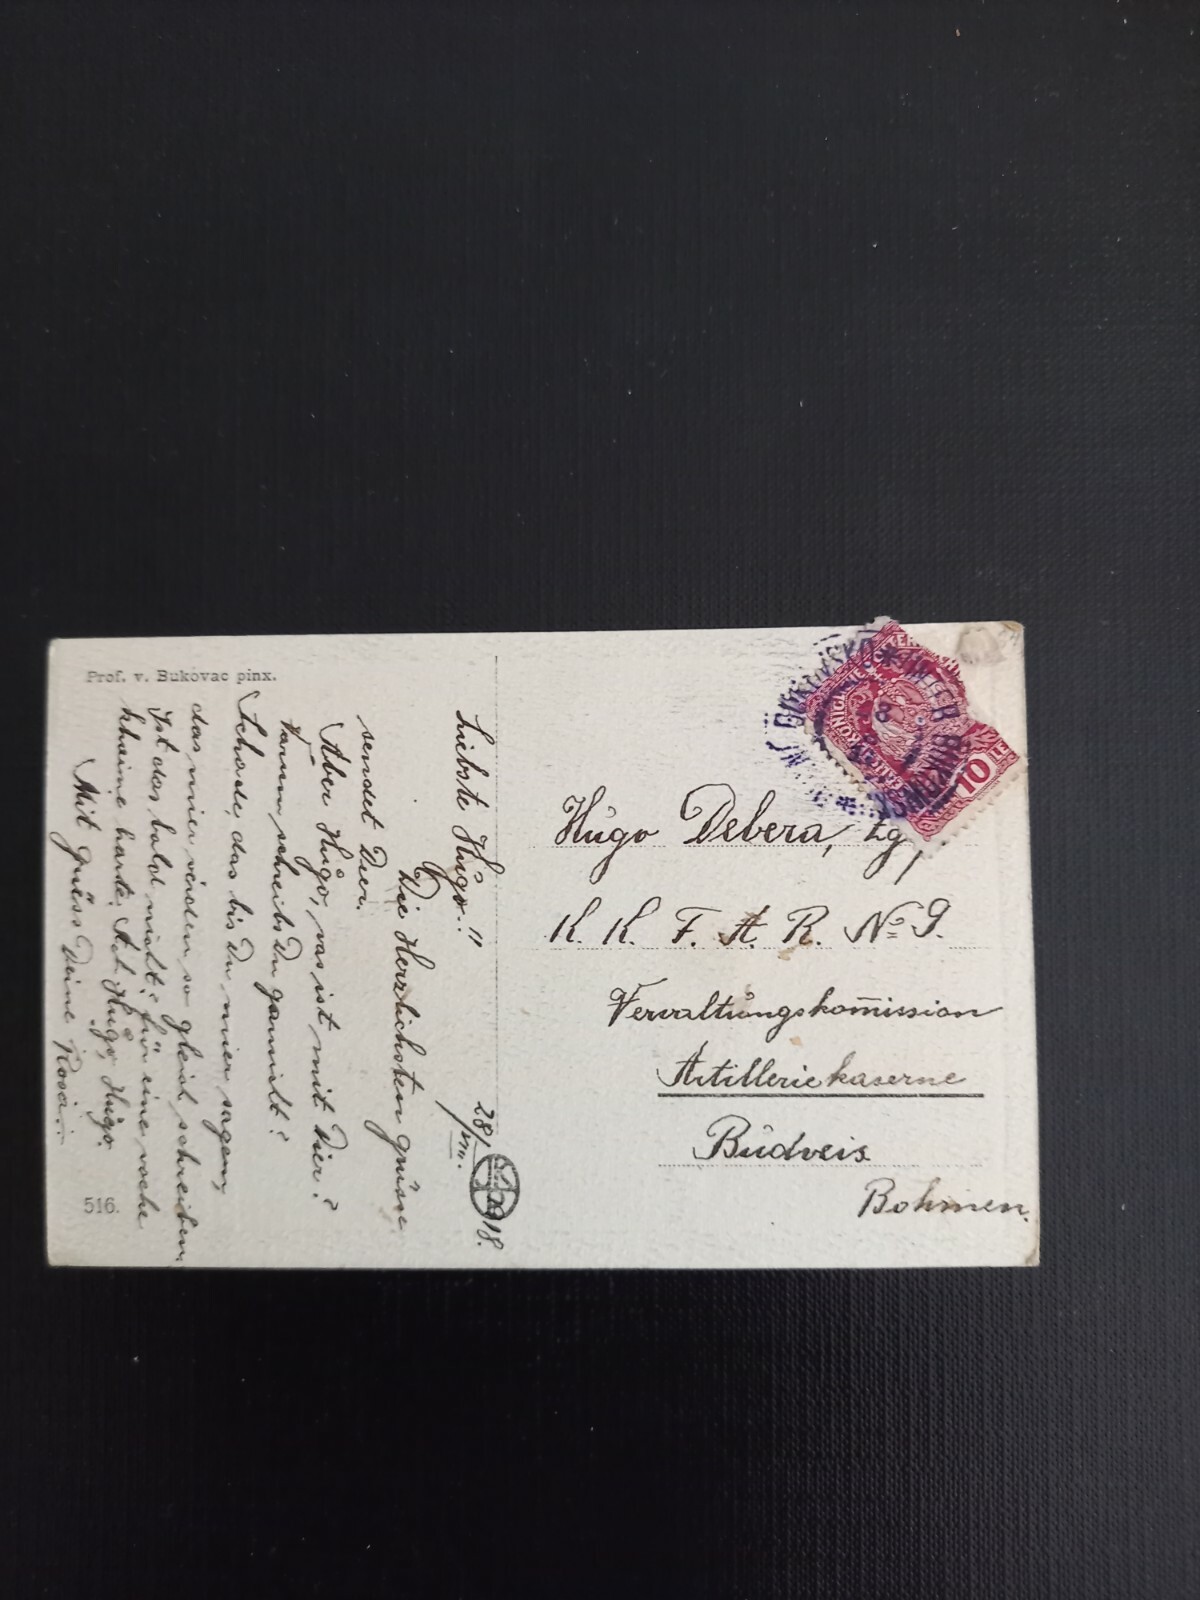 Prof. v. Bukovac pinx.
28/VIII. 1918.
Liebste Hugo!!
Die Herzlichsten grüsse
sendet Dier.
Aber Hugo, was ist mit Dier?
Warum schreibs Du garnist?
Schade, das bis Du mier sagen,
das mier werden so gleich schreiben,
Ist das bald nisht? für eine woche
kheine karte. Ach Hugo, Hugo.
Mit grüss Deine Rosa.
516.
10
Hugo Debera, Zg
K. K. F. A. R. No 9.
Verwaltungskom̅ission
Artilleriekaserne
Budweis
Bohmen.